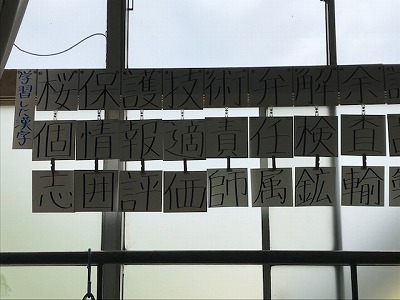 学習した漢字
桜保護技術弁解余
個情報適責任検査
志囲評価師属鉱輸